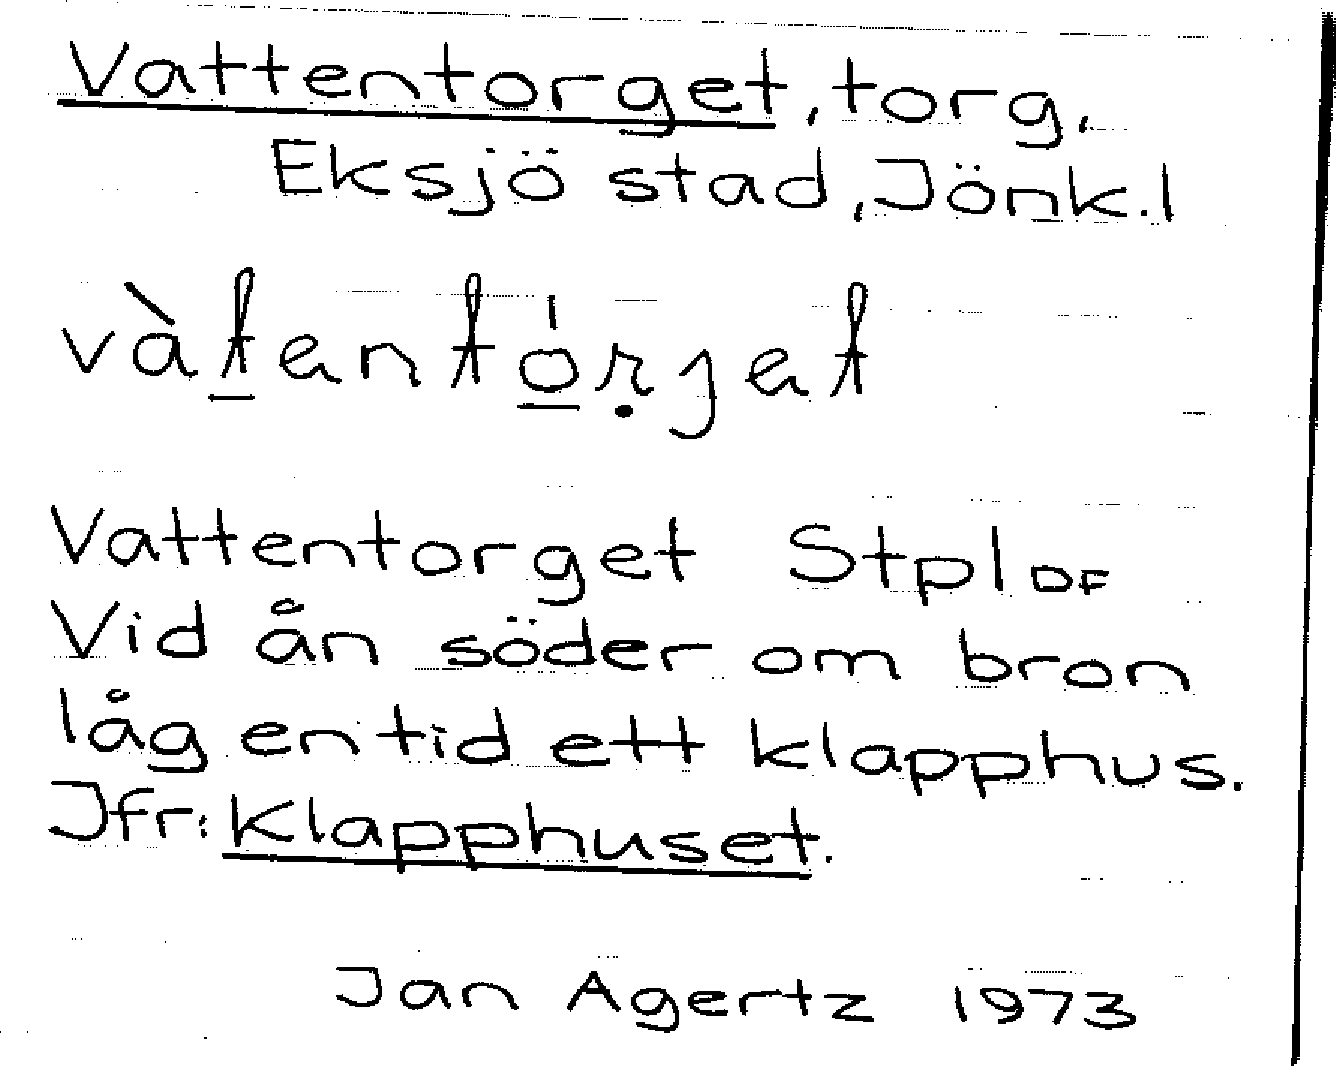 Vattentorget, torg,
Eksjö stad, Jönk.l
vàt̲entó̲rʒ̣et
Vattentorget Stpl DF
Vid ån söder om bron
låg en tid ett klapphus.
Jfr: Klapphuset.
Jan Agertz 1973